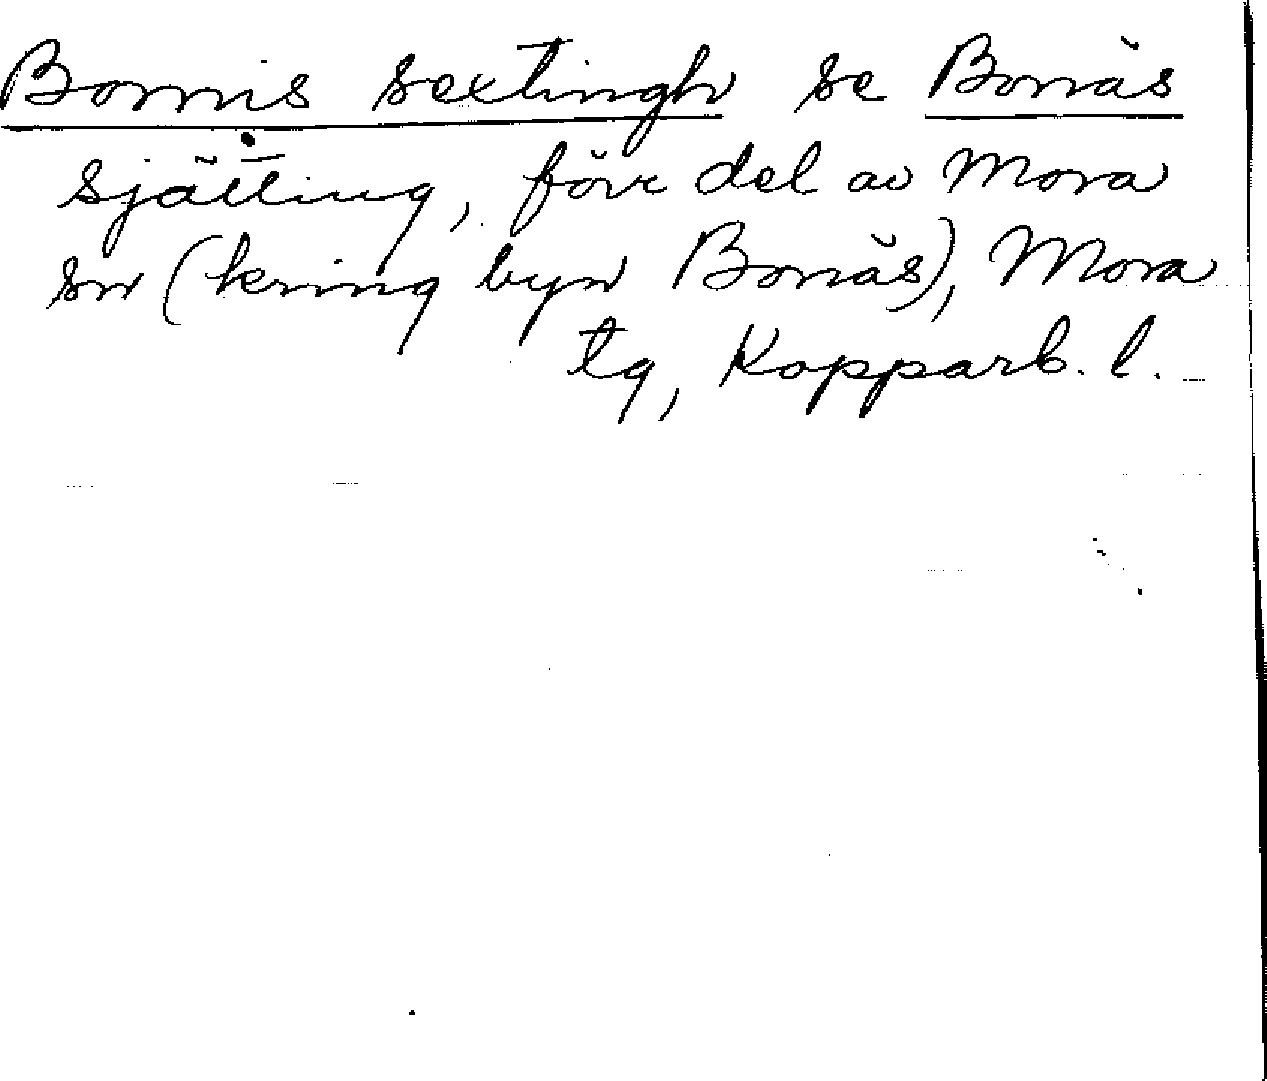 Bonnis sextingh se Bonäs
sjätting, förr del av Mora
sn (kring byn Bonäs), Mora
tg, Kopparb. l.